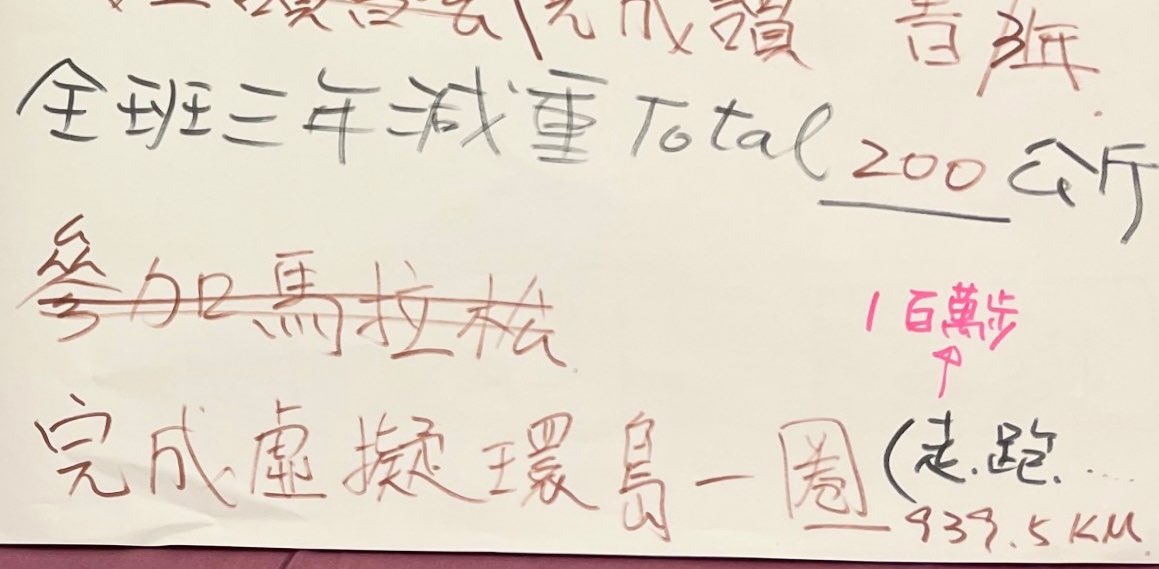 完成讀
全班三年減重Total 200 公斤
參加馬拉松
1百萬步
完成虛擬環島一圈(走.跑.....
939.5KM